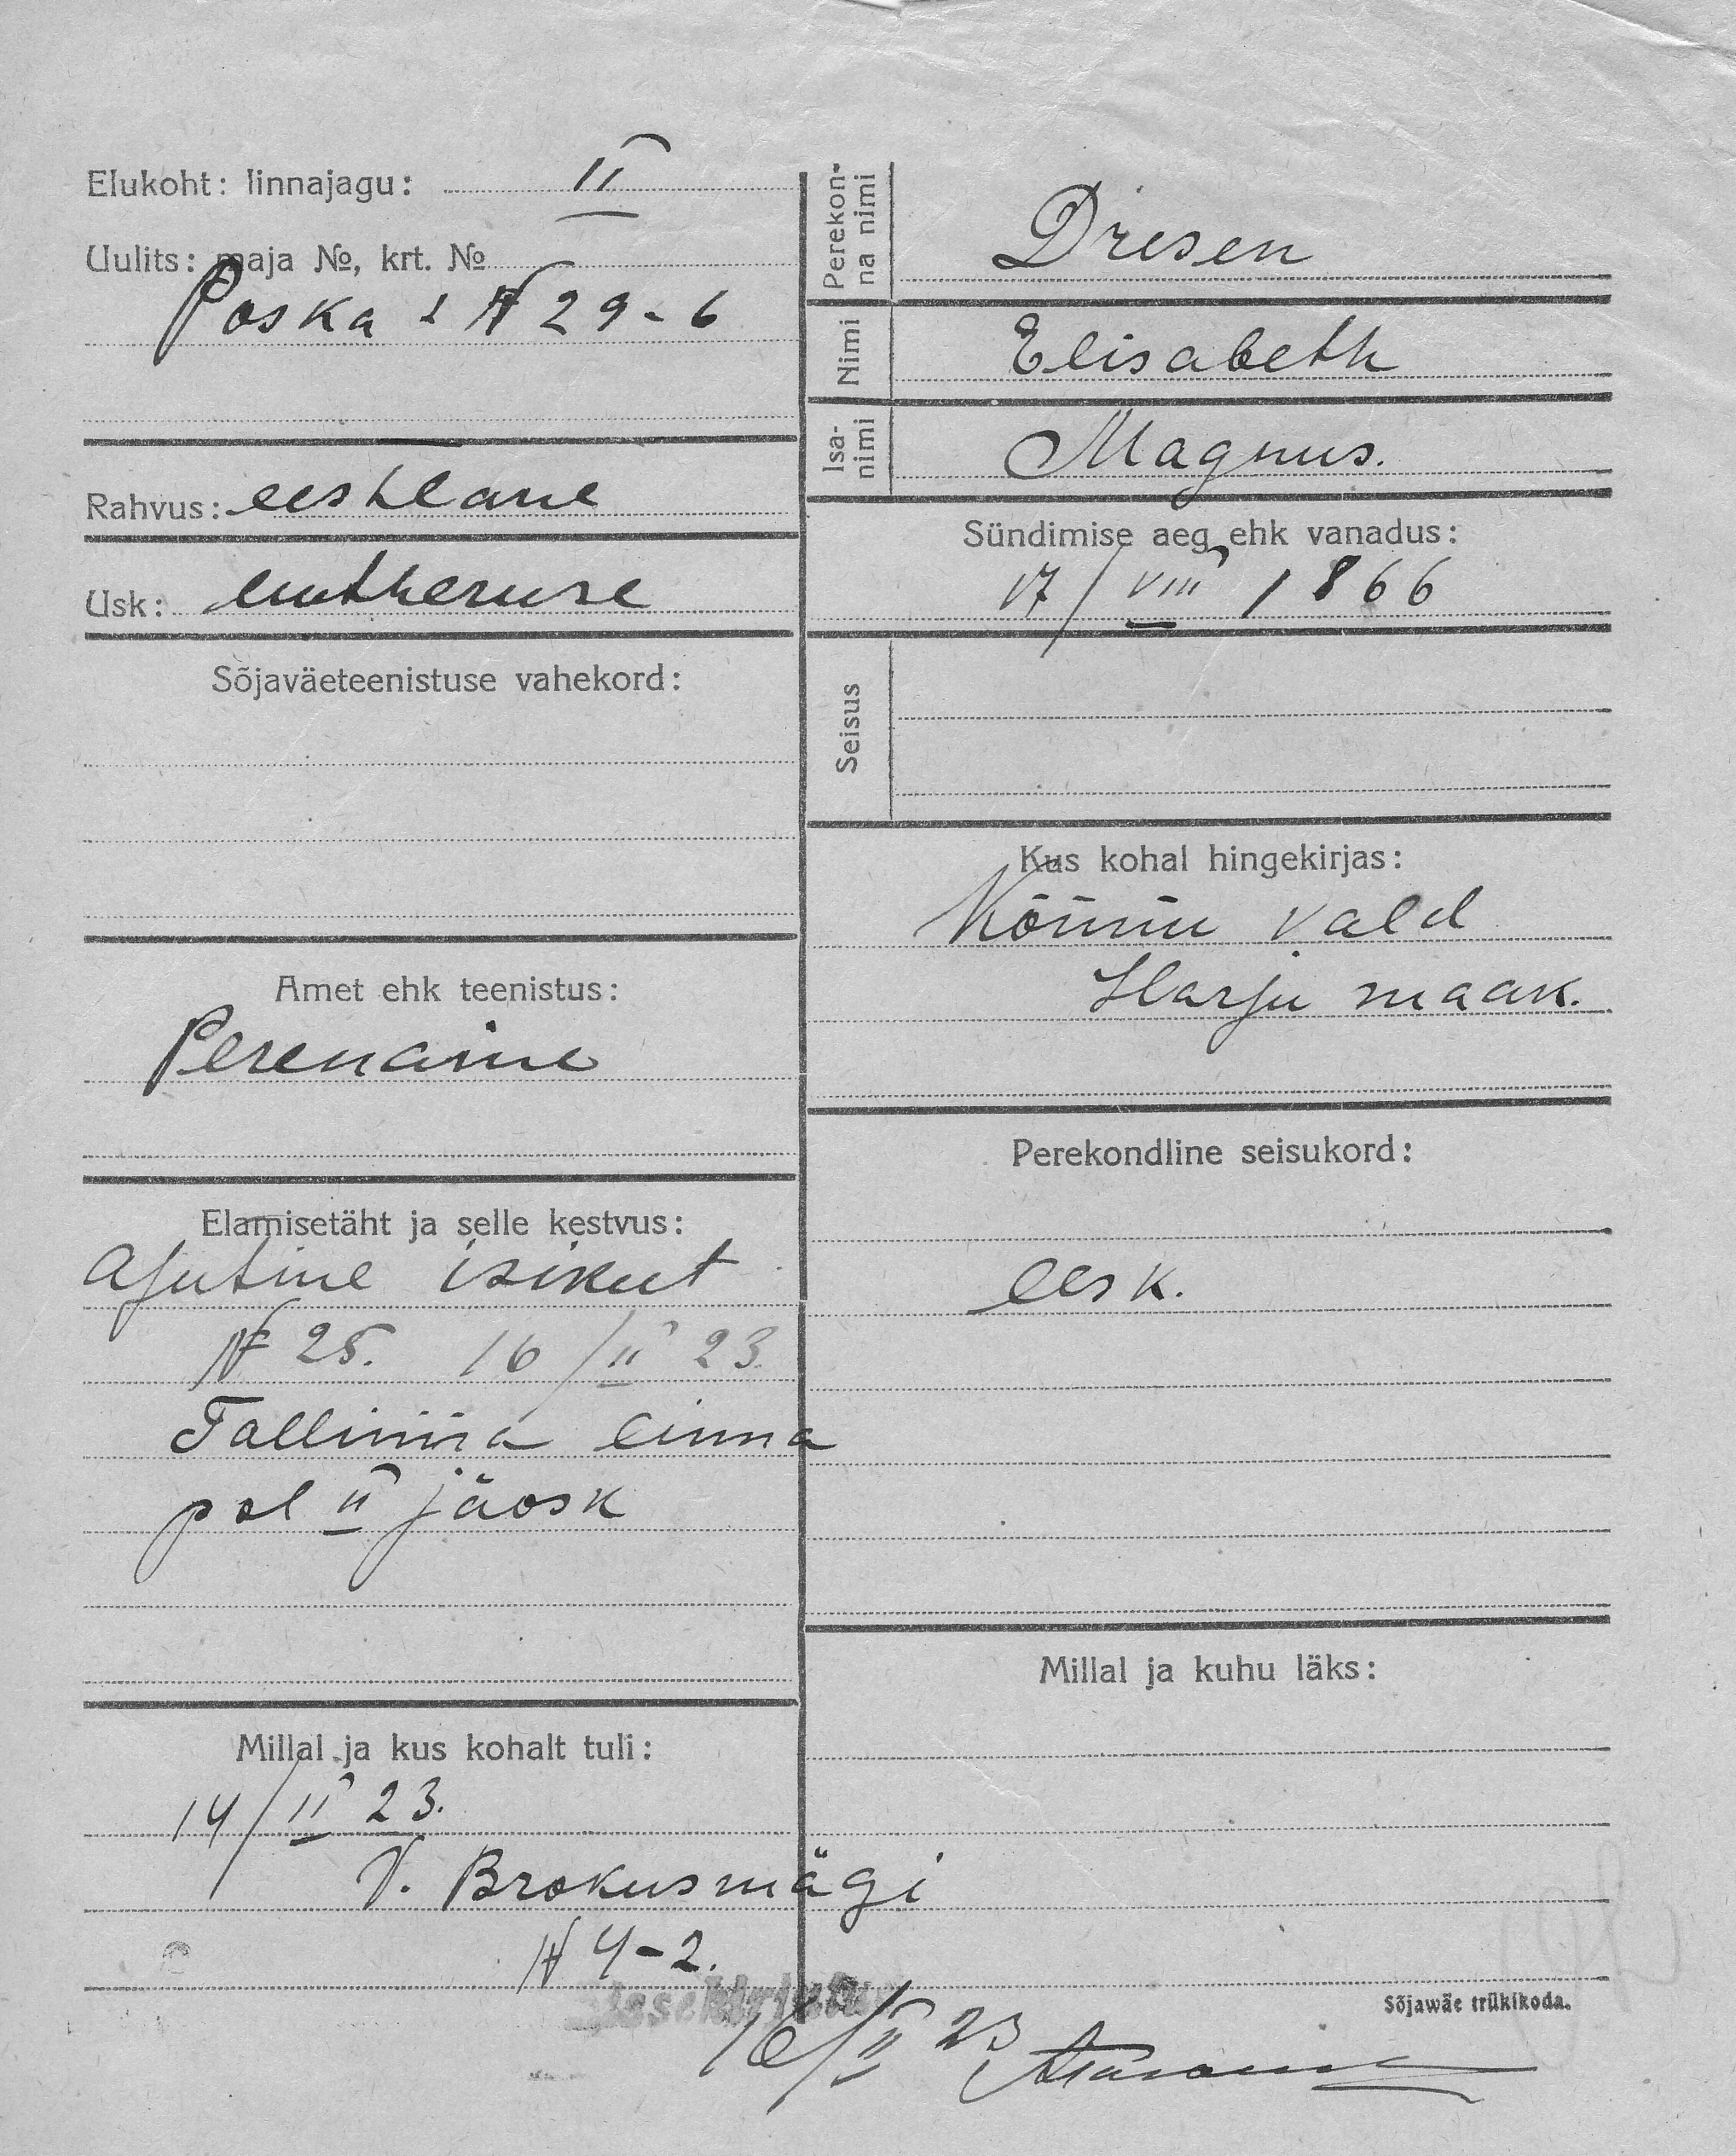 Elukoht: linnajagu: II
Uulits: maja №, krt. №
Poska t № 29-6
Rahvus: eestlane
Usk: lutheruse
Sõjaväeteenistuse vahekord:
Amet ehk teenistus:
Perenaine
Elamisetäht ja selle kestvus:
Ajutine isikut
№ 25. 16/II 23.
Tallinna linna
pol II jaosk
Millal ja kus kohalt tuli:
14/II 23.
V. Brokusmägi
№ 4-2.
Perekon-
na nimi
Dresen
Nimi
Elisabeth
Isa-
nimi
Magnus.
Sündimise aeg ehk vanadus:
17/VIII 1866
Seisus
Kus kohal hingekirjas:
Kõnnu vald
Harju maak.
Perekondline seisukord:
lesk.
Millal ja kuhu läks:
Sõjawäe trükikoda.
16/II 23